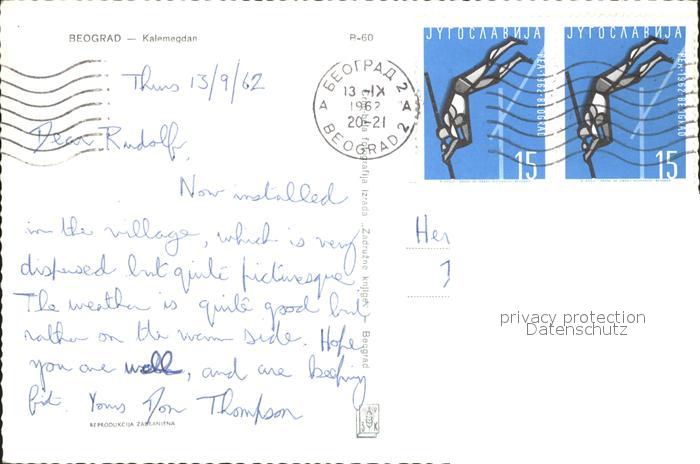 BEOGRAD — Kalemegdan
P-60
Thurs 13/9/62
Dear Rudolf,
Now installed
in the village, which is very
dispersed but quite picturesque.
The weather is quite good but
rather on the warm side. Hope
you are well, and are keeping
fit. Yours Don Thompson
REPRODUKCIJA ZABRANJENA
Kolor fotografija Izrada Zadružne knjige, Beograd
БЕОГРАД 2
13 -IX
1962
20-21
A A
BEOGRAD 2
ЈУГОСЛАВИЈА
BEOGRAD
15
ЈУГОСЛАВИЈА
BEOGRAD
15
Her
privacy protection
Datenschutz